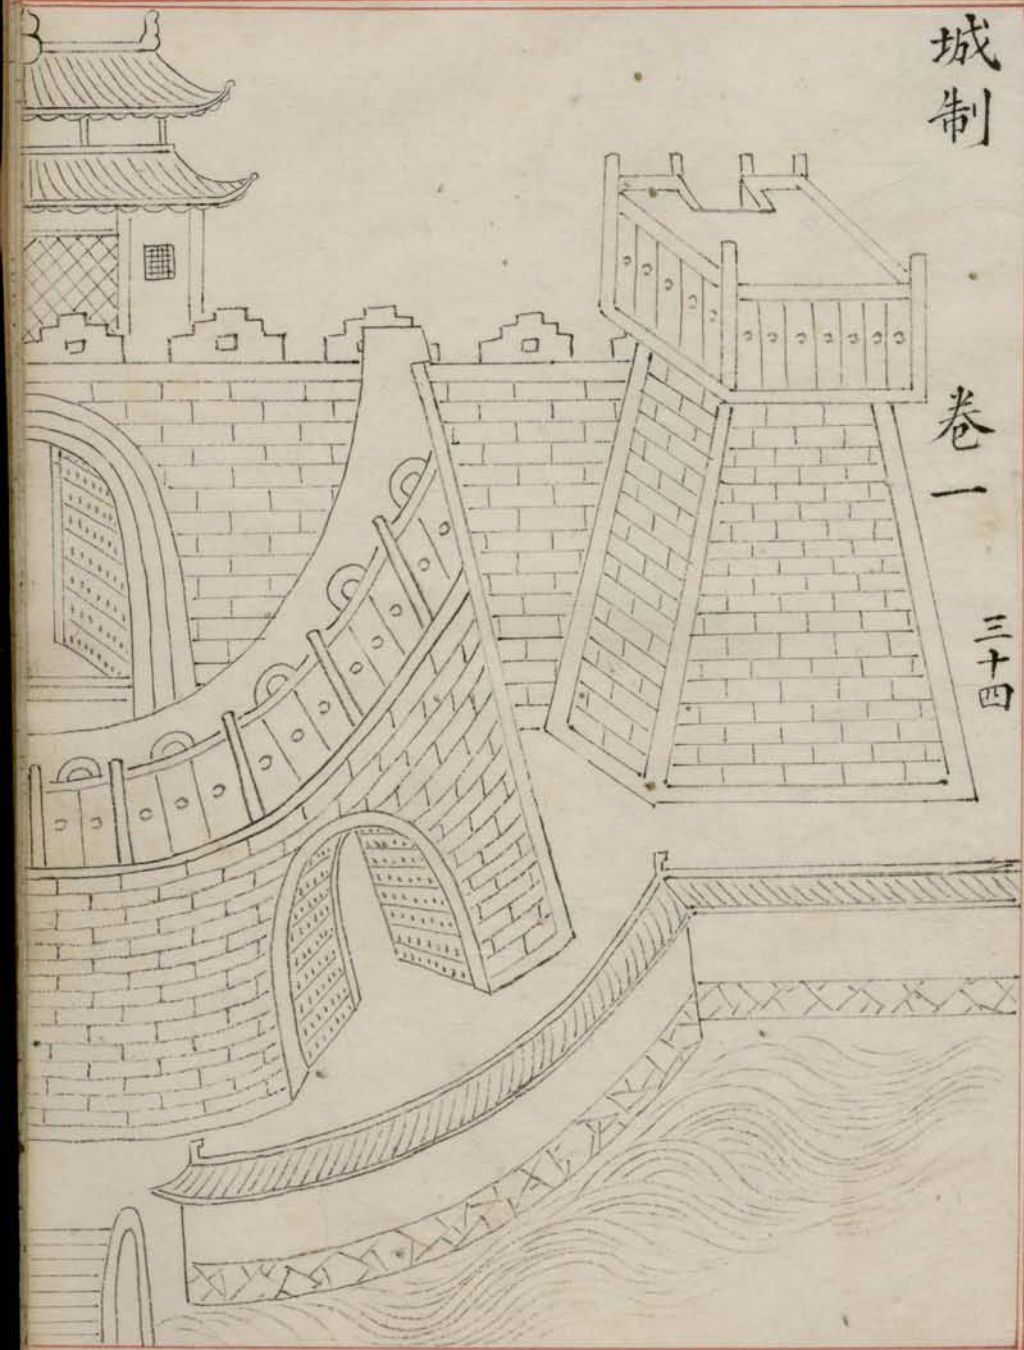 城制
卷一
三十四